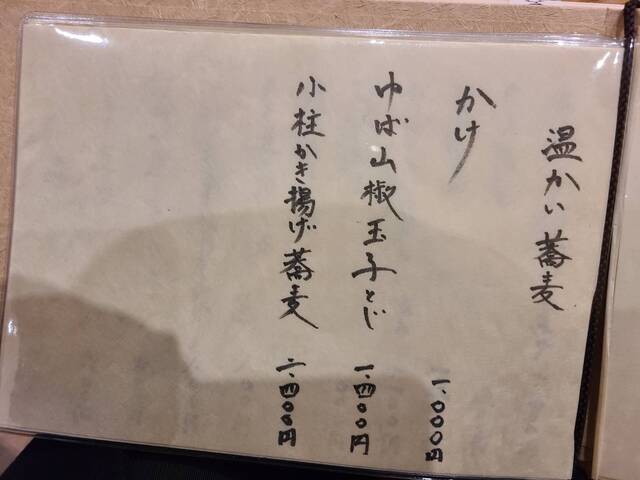 温かい蕎麦
かけ 一、〇〇〇円
ゆば山椒玉子とじ 一、四〇〇円
小柱かき揚げ蕎麦 二、四〇〇円